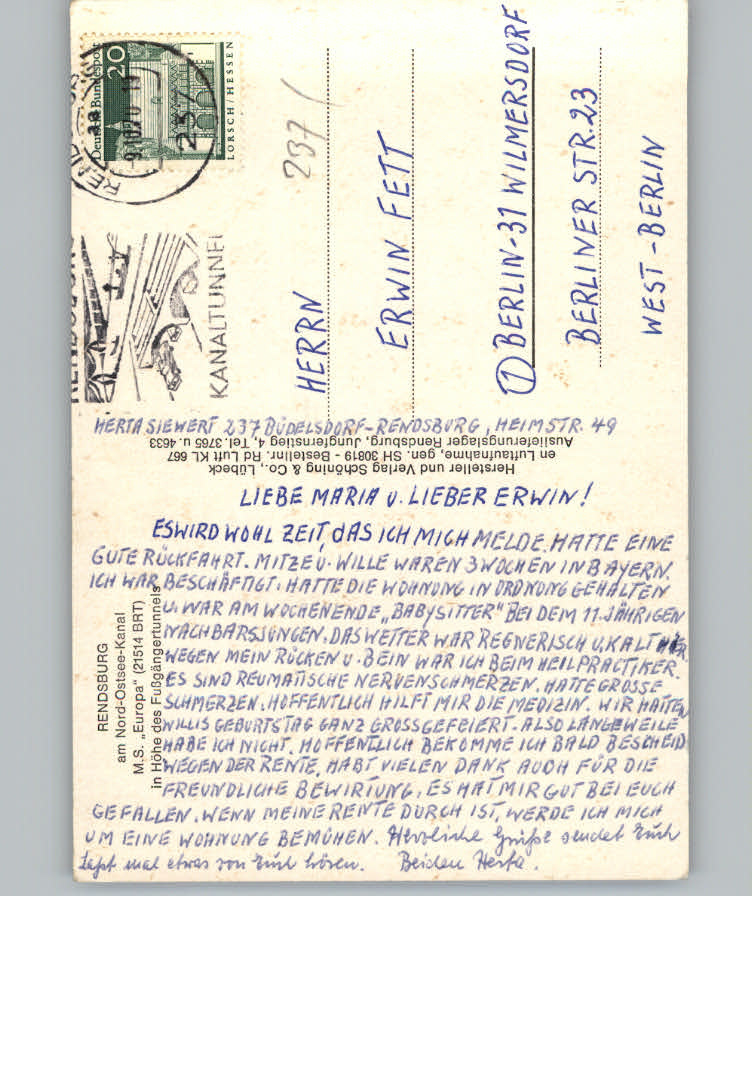 Deutsche Bundespost
20
LORSCH / HESSEN
-9.10.70-11
237
KANALTUNNEL
237
HERRN
ERWIN FETT
1 BERLIN-31 WILMERSDORF
BERLINER STR. 23
WEST-BERLIN
HERTA SIEWERT 237 BÜDELSDORF-RENDSBURG, HEIMSTR. 49
Hersteller und Verlag Schöning & Co., Lübeck
en Luftaufnahme, gen. SH 30819 - Bestellnr. Rd Luft KL 667
Auslieferungslager Rendsburg, Jungfernstieg 4, Tel. 3765 u. 4633
RENDSBURG
am Nord-Ostsee-Kanal
M.S. „Europa" (21514 BRT)
in Höhe des Fußgängertunnels
LIEBE MARIA U. LIEBER ERWIN!
ES WIRD WOHL ZEIT, DAS ICH MICH MELDE. HATTE EINE
GUTE RÜCKFAHRT. MITZE U. WILLE WAREN 3 WOCHEN IN BAYERN.
ICH WAR BESCHÄFTIGT. HATTE DIE WOHNUNG IN ORDNUNG GEHALTEN
U. WAR AM WOCHENENDE „BABYSITTER" BEI DEM 11. JÄHRIGEN
NACHBARSJUNGEN. DAS WETTER WAR REGNERISCH U. KALT HIER.
WEGEN MEIN RÜCKEN U. BEIN WAR ICH BEIM HEILPRACTIKER.
ES SIND REUMATISCHE NERVENSCHMERZEN. HATTE GROSSE
SCHMERZEN. HOFFENTLICH HILFT MIR DIE MEDIZIN. WIR HATTEN
WILLIS GEBURTSTAG GANZ GROSS GEFEIERT. ALSO LANGEWEILE
HABE ICH NICHT. HOFFENTLICH BEKOMME ICH BALD BESCHEID
WEGEN DER RENTE. HABT VIELEN DANK AUCH FÜR DIE
FREUNDLICHE BEWIRTUNG. ES HAT MIR GUT BEI EUCH
GEFALLEN. WENN MEINE RENTE DURCH IST, WERDE ICH MICH
UM EINE WOHNUNG BEMÜHEN. Herzliche Grüße sendet Euch
Laßt mal etwas von Euch hören. Beiden Herta.